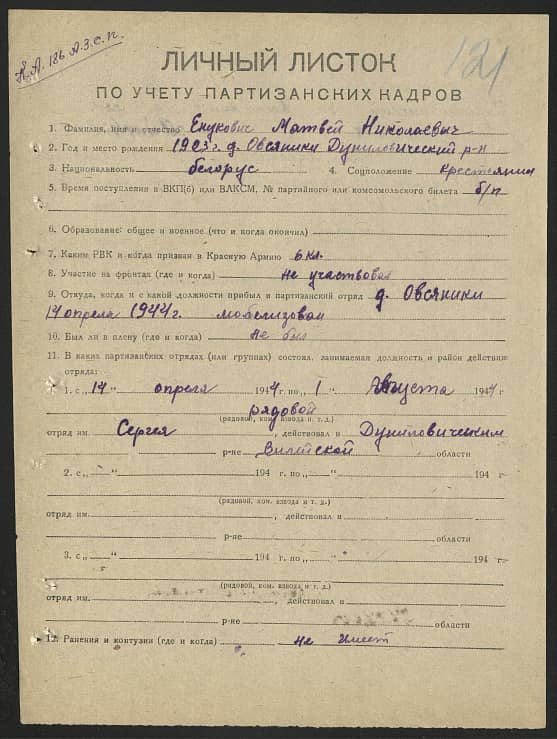 Л.А. 186 А.З.С.П.
121
ЛИЧНЫЙ ЛИСТОК
ПО УЧЕТУ ПАРТИЗАНСКИХ КАДРОВ
1. Фамилия, имя и отчество Енукович Матвей Николаевич
2. Год и место рождения 1923 г. д. Овсяники Дуниловический р-н
3. Национальность белорус 4. Соцположение крестьянин
5. Время поступления в ВКП(б) или ВЛКСМ, № партийного или комсомольского билета б/п
6. Образование: общее и военное (что и когда окончил)
7. Каким РВК и когда призван в Красную Армию 6 кл.
8. Участие на фронтах (где и когда) не участвовал
9. Откуда, когда и с какой должности прибыл в партизанский отряд д. Овсяники
14 апреля 1944 г. мобелизован
10. Был ли в плену (где и когда) не был
11. В каких партизанских отрядах (или группах) состоял, занимаемая должность и район действия
отряда:
1. с „14“ апреля 1944 г. по „1 Августа 1944 г.
рядовой
(рядовой, ком. взвода и т. д.)
отряд им. Сергея, действовал в Дуниловическим
р-не Вилейской области
2. с „ “ 194 г. по „ “ 194 г.
(рядовой, ком. взвода и т. д.)
отряд им. , действовал в
р-не области
3. с „ “ 194 г. по „ “ 194 г.
(рядовой, ком. взвода и т. д.)
отряд им. , действовал в
р-не области
12. Ранения и контузии (где и когда) не имеет